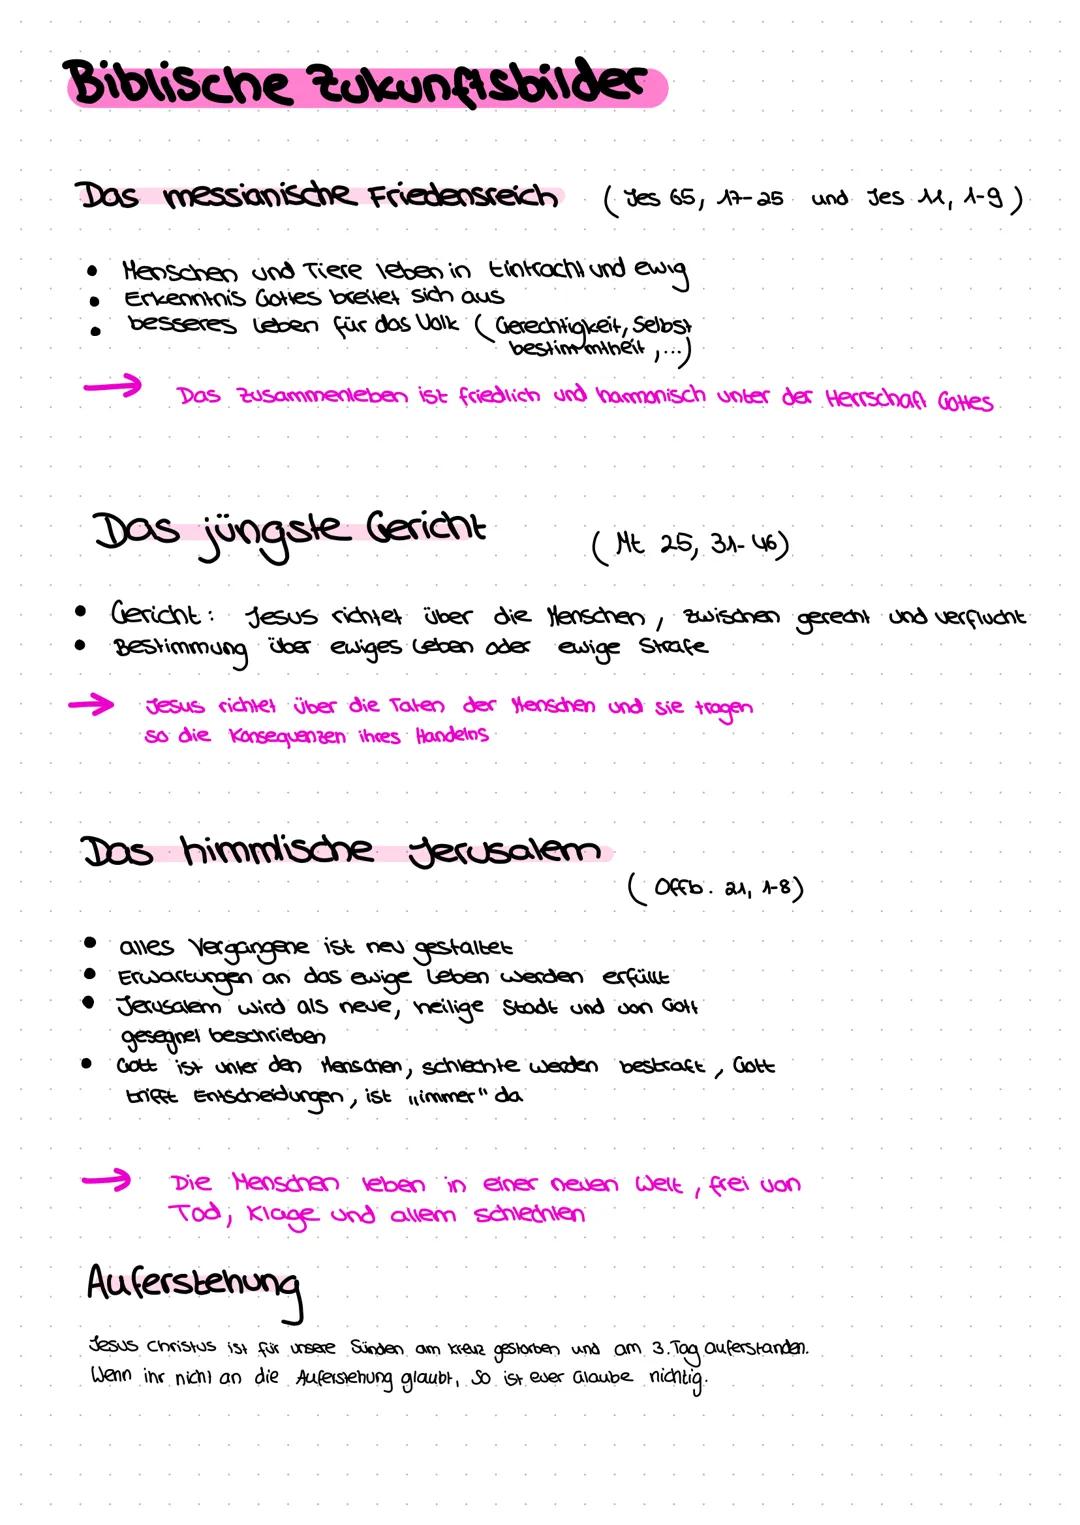 Biblische Zukunftsbilder
Das messianische Friedensreich (Jes 65, 17-25 und Jes 11, 1-9)
• Menschen und Tiere leben in Eintracht und ewig
• Erkenntnis Gottes breitet sich aus
• besseres Leben für das Volk (Gerechtigkeit, Selbst
bestimmtheit, ...)
→ Das Zusammenleben ist friedlich und harmonisch unter der Herrschaft Gottes
Das jüngste Gericht (Mt 25, 31-46)
• Gericht: Jesus richtet über die Menschen, zwischen gerecht und verflucht
• Bestimmung über ewiges Leben oder ewige Strafe
→ Jesus richtet über die Taten der Menschen und sie tragen
so die Konsequenzen ihres Handelns
Das himmlische Jerusalem
(Offb. 21, 1-8)
• alles Vergangene ist neu gestaltet
• Erwartungen an das ewige Leben werden erfüllt
• Jerusalem wird als neue, heilige Stadt und von Gott
gesegnet beschrieben
• Gott ist unter den Menschen, schlechte werden bestraft, Gott
trifft Entscheidungen, ist „immer" da
→ Die Menschen leben in einer neuen Welt, frei von
Tod, Klage und allem schlechten
Auferstehung
Jesus Christus ist für unsere Sünden am Kreuz gestorben und am 3. Tag auferstanden.
Wenn ihr nicht an die Auferstehung glaubt, so ist euer Glaube nichtig.